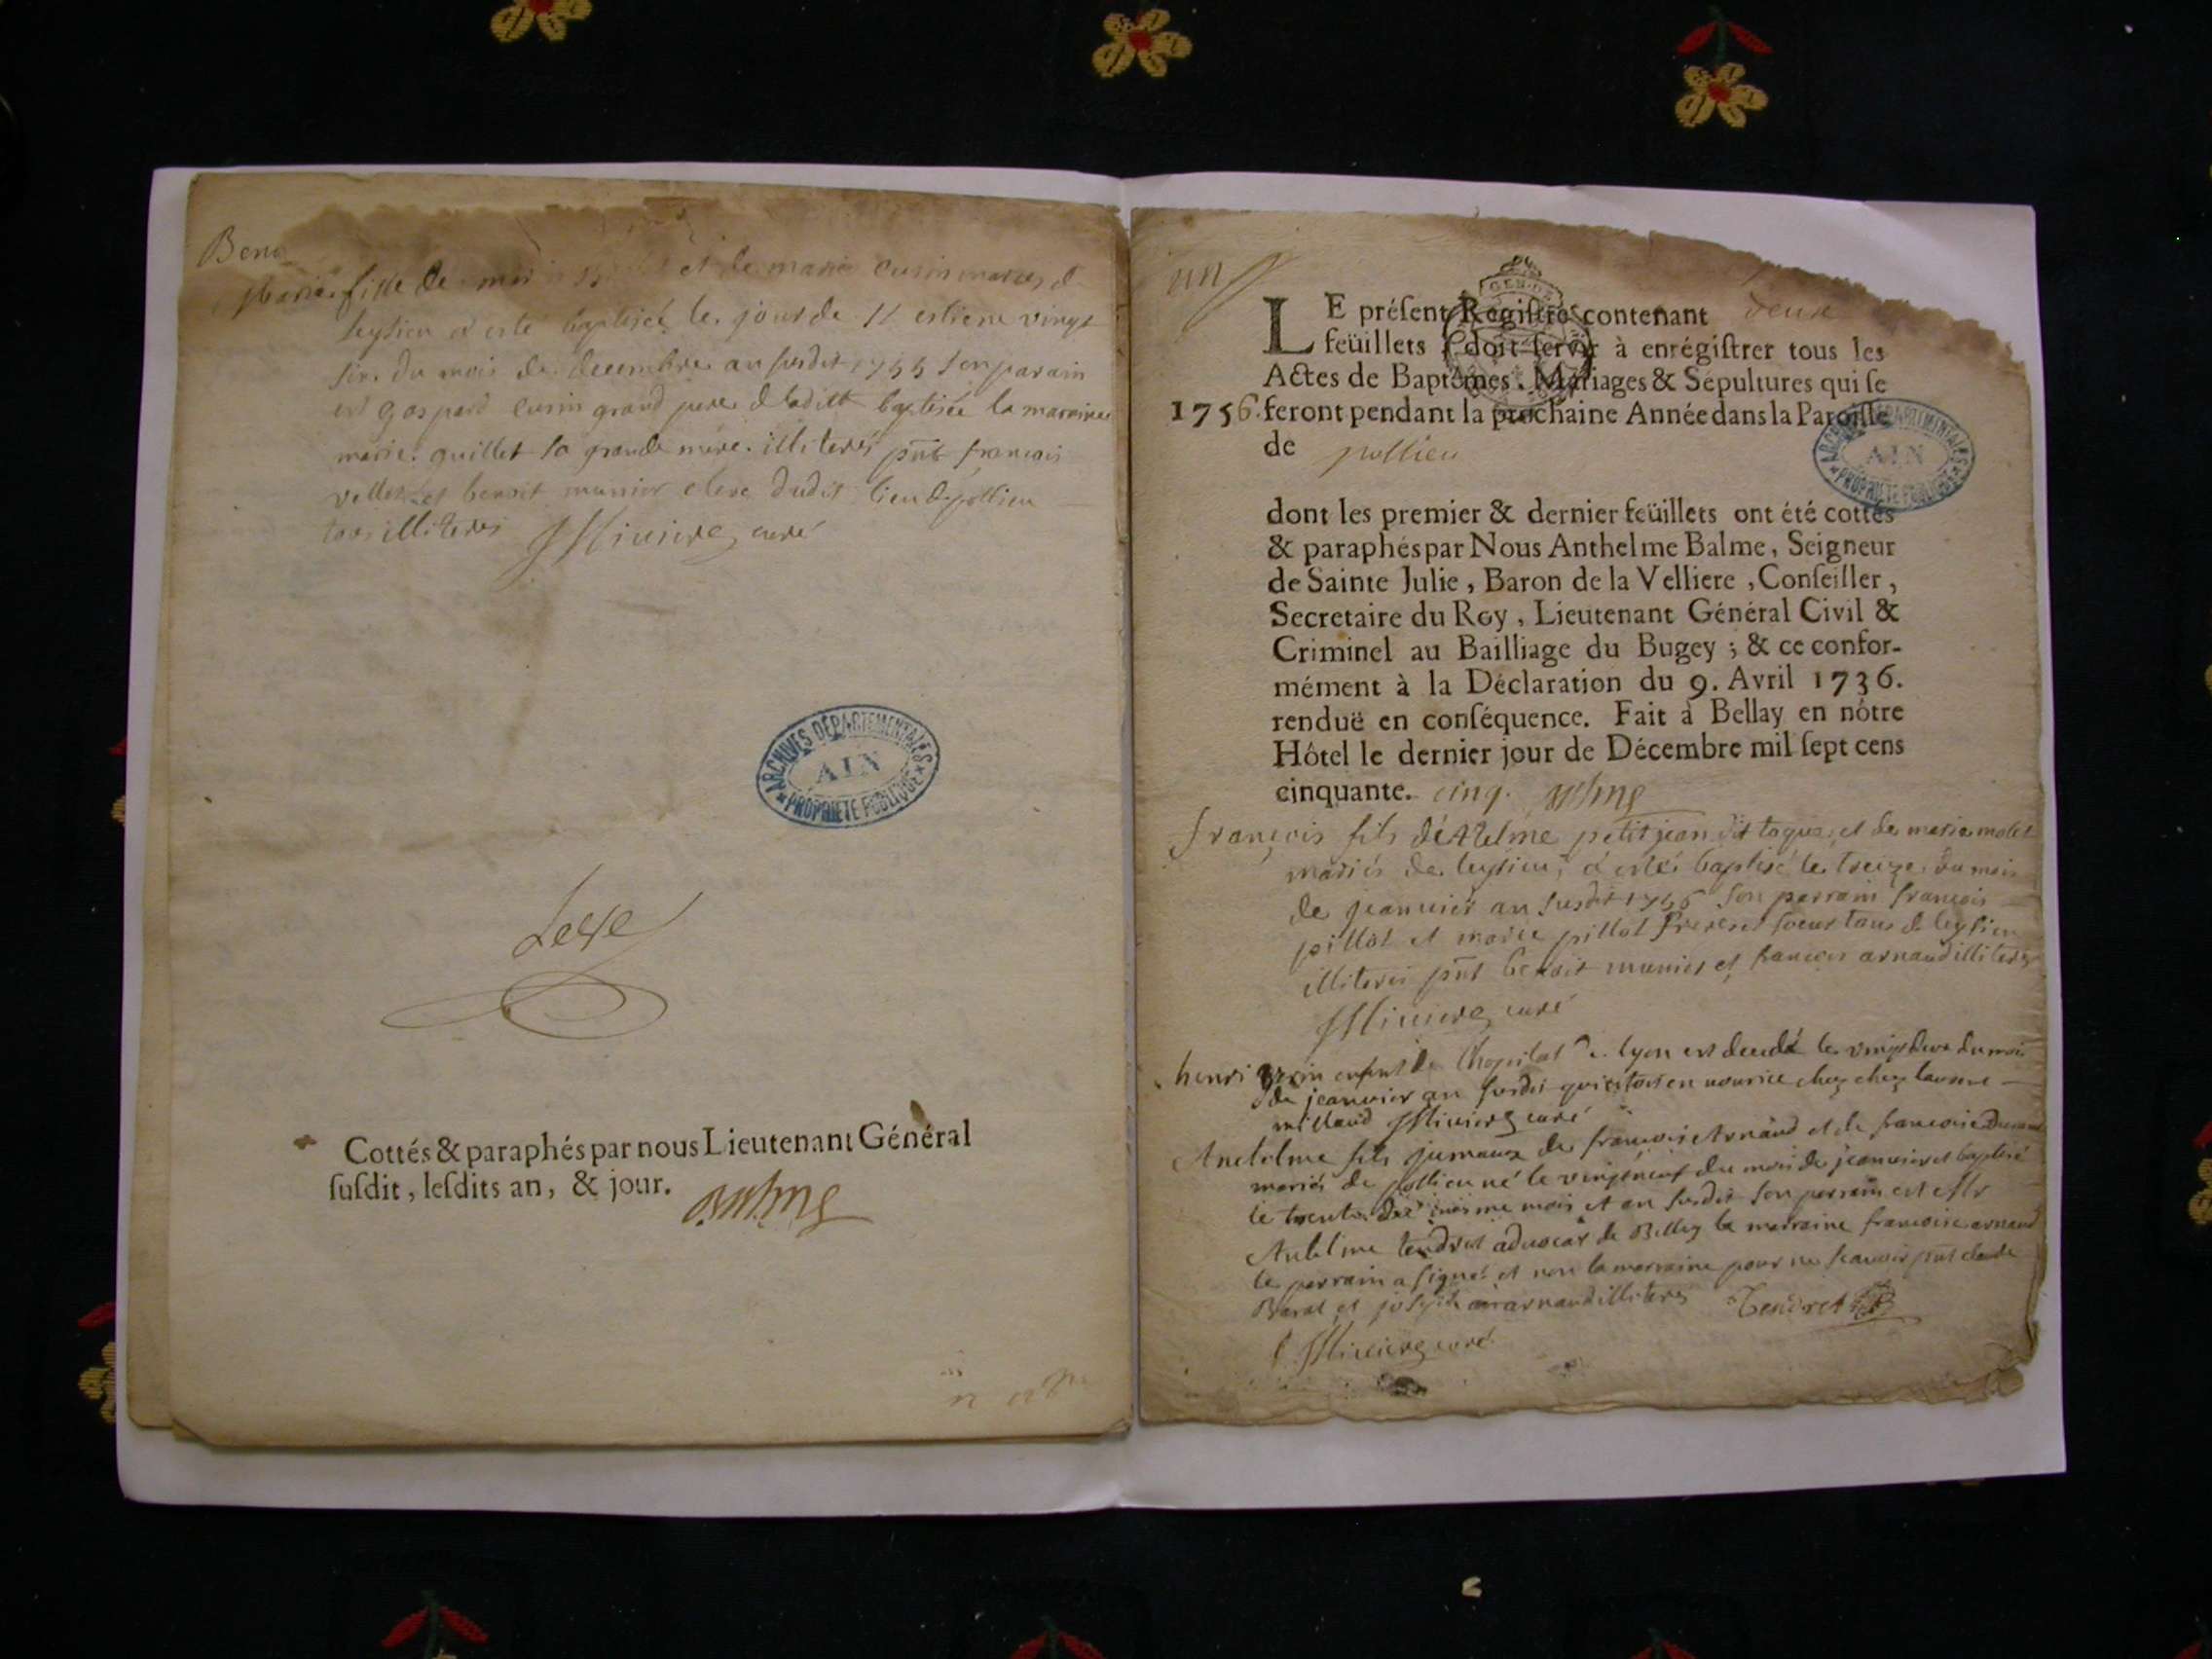 Bene
Marie fille de et de marie cusin mariés d
leysieu a esté baptisée le jour de St estiene vingt
six du mois de decembre an susdit 1755 son parain
est gaspard cusin grand pere de laditte baptisée la maraine
marie guillet sa grande mere illiterés pnt francois
et benoit munier clerc dudit lieu de pollieu
tous illiteres curé
ARCHIVES DÉPARTEMENTALES
AIN
PROPRIÉTÉ PUBLIQUE
Cottés & paraphés par nous Lieutenant Général
susdit, lesdits an, & jour.
un
LE présent Registre contenant deux
feüillets doit servir à enrégistrer tous les
Actes de Baptêmes, Mariages & Sépultures qui se
1756. feront pendant la prochaine Année dans la Paroisse
de pollieu
ARCHIVES DÉPARTEMENTALES
AIN
PROPRIÉTÉ PUBLIQUE
dont les premier & dernier feüillets ont été cottés
& paraphés par Nous Anthelme Balme, Seigneur
de Sainte Julie, Baron de la Velliere, Conseiller,
Secretaire du Roy, Lieutenant Général Civil &
Criminel au Bailliage du Bugey ; & ce confor-
mément à la Déclaration du 9. Avril 1736.
renduë en conséquence. Fait à Bellay en nôtre
Hôtel le dernier jour de Décembre mil sept cens
cinquante. cinq.
françois fils petit jean dit et de marie molet
mariés de leysieu, a esté baptisé le treize du mois
de jeanvier an susdit 1756 son parrain francois
pillot et marie pillot frere et soeur tous de leysieu
illiterés pnt benoit munier et francois arnaud illiteres
curé
henri enfant de l'hopital de lyon est decedé le vingt deux du mois
de jeanvier an susdit qui estoit en nourice chez chez
millaud curé
Anthelme fils jumeaux de francois Arnaud et de francoise
mariés de pollieu né le vingt neuf du mois de jeanvier et baptisé
le trente du mesme mois et an susdit son parrain est Mr
Anthelme tendret advocat de Belley la marraine francoise arnaud
le parrain a signé et non la marraine pour ne scavoir pnt claude
et joseph arnaud illiteres Tendret
curé